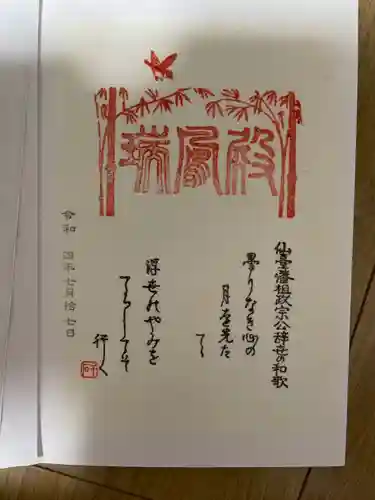 瑞鳳殿
仙臺藩祖政宗公辞世の和歌
曇りなき心の
月を先だ
て
浮世のやみを
てらしてそ
行く
令和 四年七月拾七日